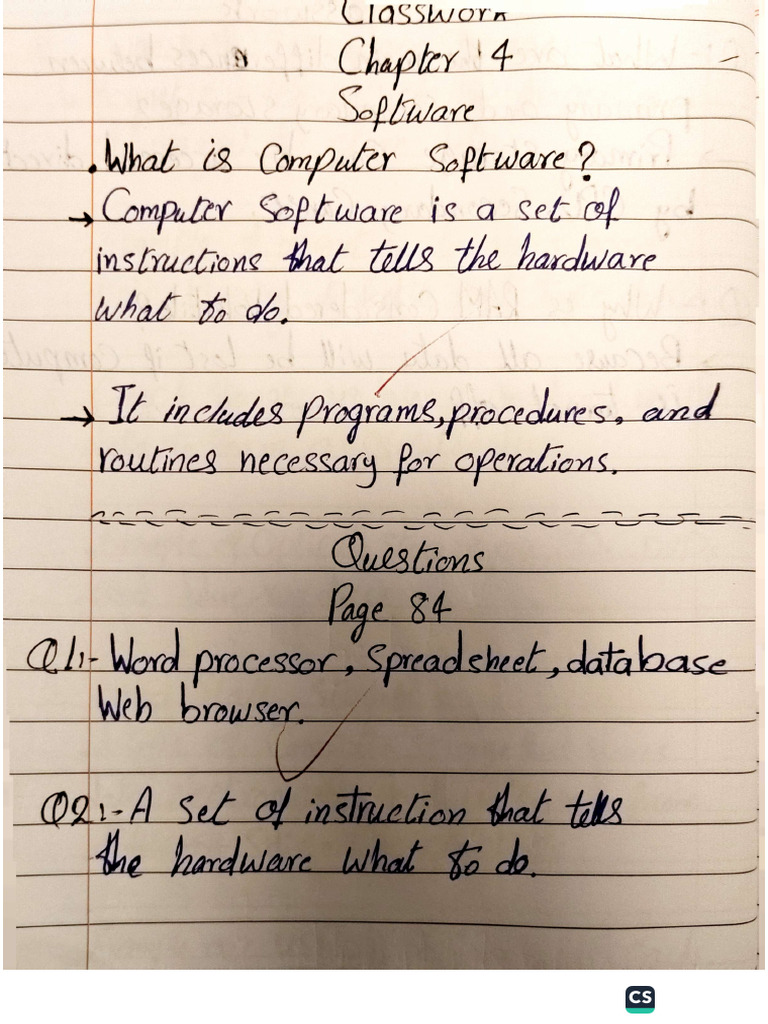 Classwork
Chapter : 4
Software
. What is Computer Software?
→ Computer Software is a set of
instructions that tells the hardware
what to do.
→ It includes programs, procedures, and
routines necessary for operations.
Questions
Page 84
Q1:- Word processor, Spreadsheet, database
Web browser.
Q2:- A set of instruction that tells
the hardware what to do.
CS